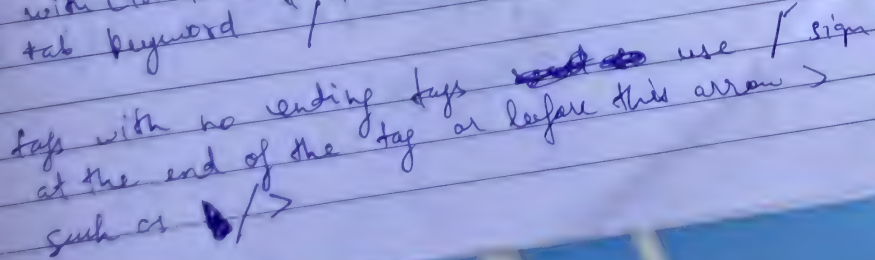 with
tab keyword /
tags with no ending tags use / sign
at the end of the tag or before this arrow >
such as />